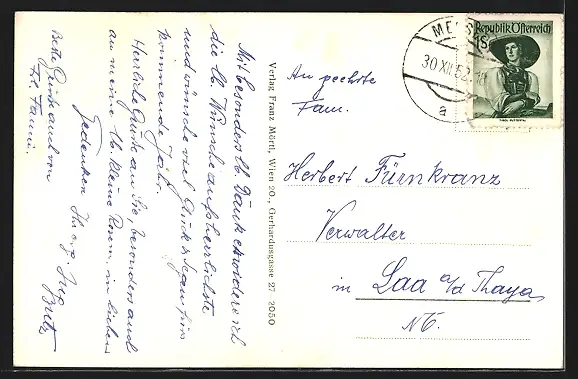 Mit besonders lb. Dank erwidere ich
die lb. Wünsche aufs herzlichste
und wünsche viel Glück & Segen fürs
kommende Jahr.
Herzliche Grüße an Sie, besonders auch
an meine lb. kleine in lieben
Gedenken Ihre
Beste Grüße auch von
Frl. Fanni.
Verlag Franz Mörtl, Wien 20., Gerhardusgasse 27, 2050
An geehrte
Fam.
Herbert Fürnkranz
Verwalter
in Laa a/d Thaya
NÖ.
30 XII 52
a
Republik Österreich
1S